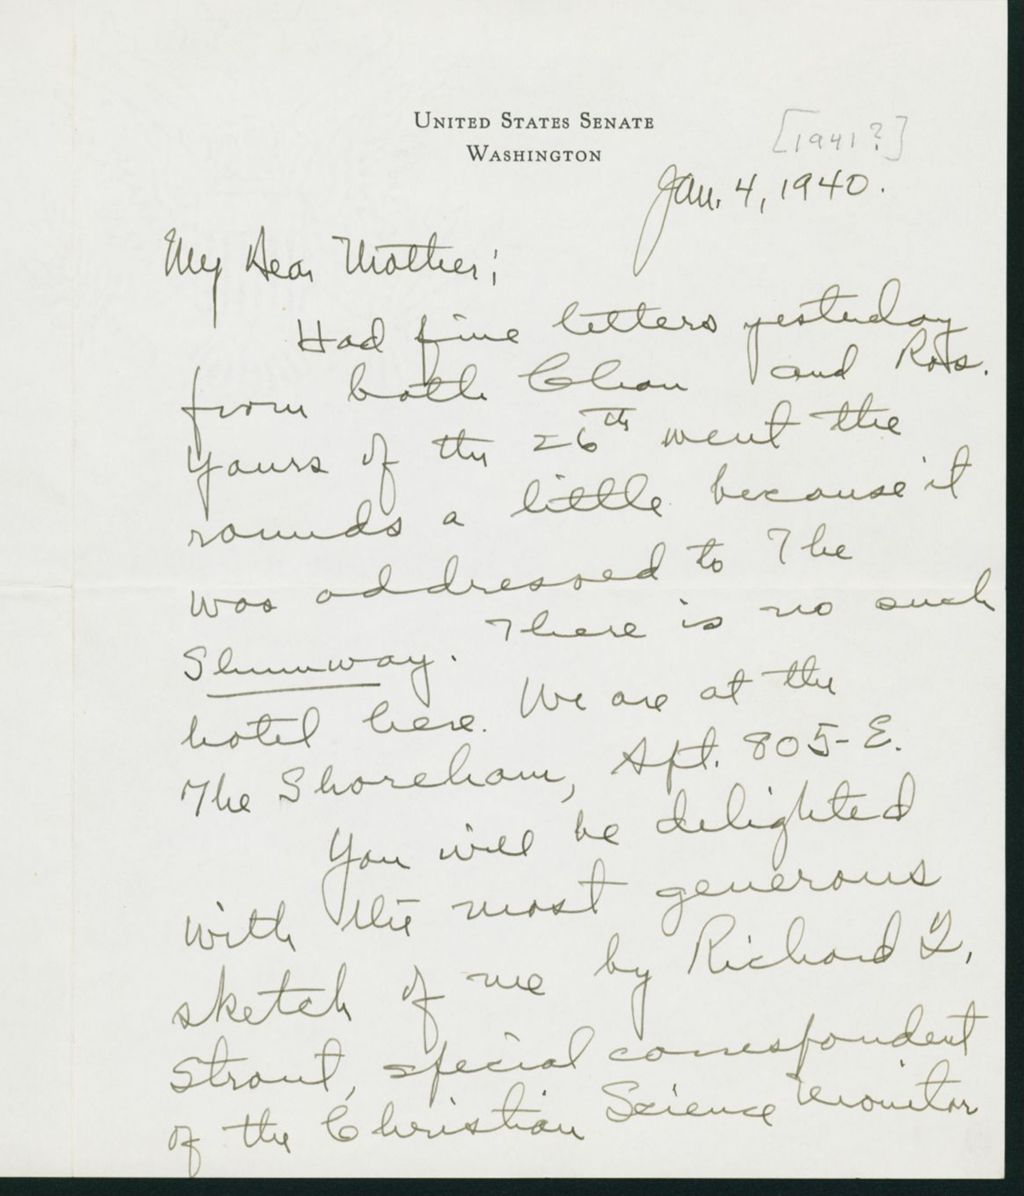 United States Senate
Washington
[1941?]
Jan. 4, 1940.
My Dear Mother;
Had fine letters yesterday
from both Chan and Ros.
Yours of the 26th went the
rounds a little because it
was addressed to The
Shumway. There is no such
hotel here. We are at the
The Shoreham, Apt. 805-E.
You will be delighted
with the most generous
sketch of me by Richard L.
Strout, special correspondent
of the Christian Science Monitor